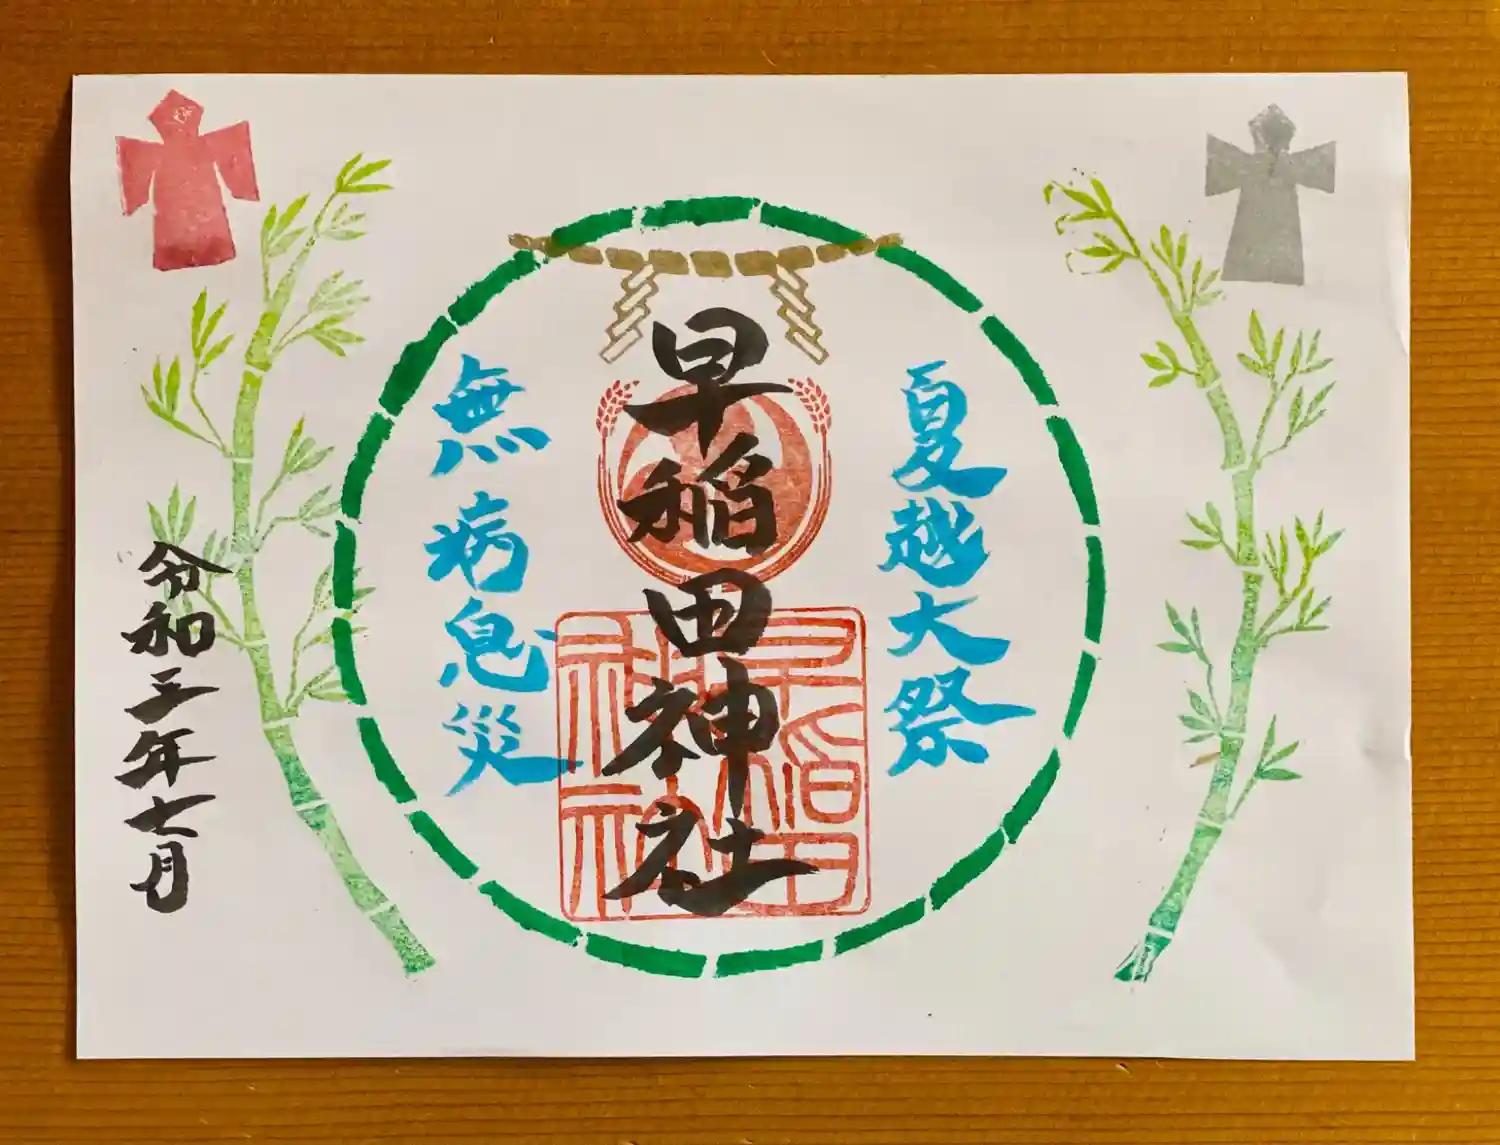 夏越大祭
早稲田神社
早稲田神社
無病息災
令和三年七月